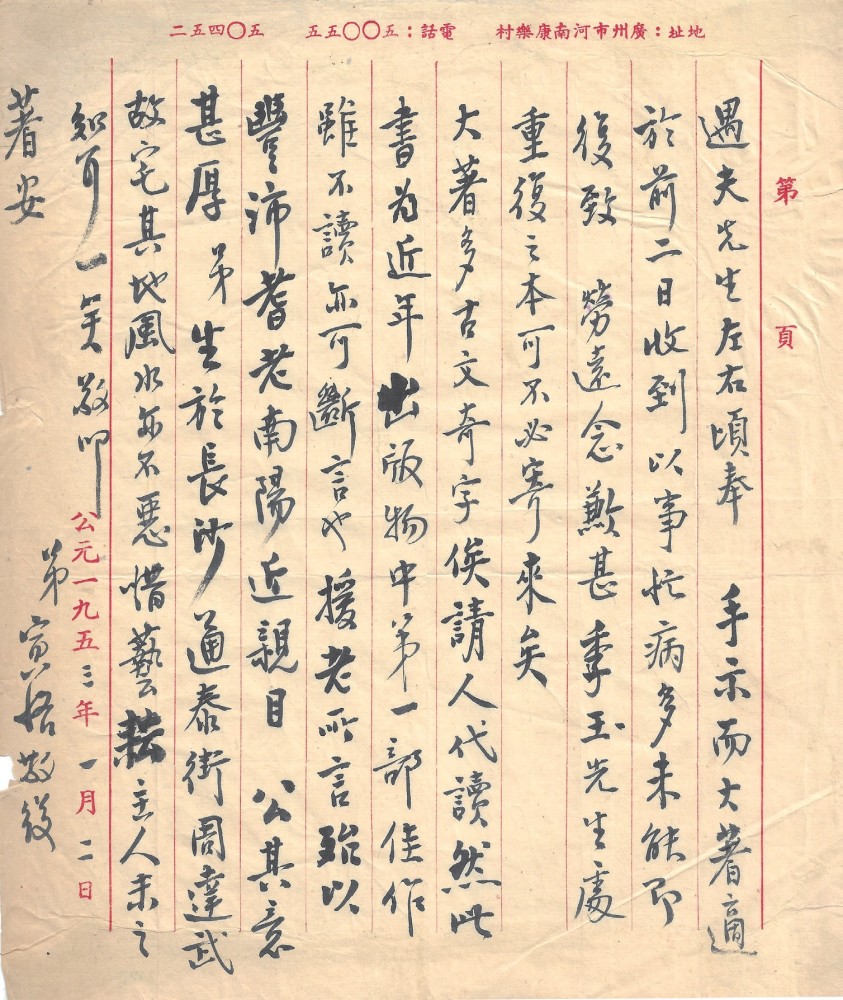 地址：廣州市河南康樂村　電話：五〇〇五五　五〇四五二
第　頁
遇夫先生左右頃奉　手示而大著適
於前二日收到以事忙病多未能即
復致　勞遠念歉甚季玉先生處
重復之本可不必寄來矣
大著多古文奇字俟請人代讀然此
書為近年出版物中第一部佳作
雖不讀亦可斷言也援老所言殆以
豐沛耆老南陽近親目　公其意
甚厚　弟生於長沙通泰街周達武
故宅其地風水亦不惡惜藝耘主人未之
知耳一笑敬叩
著安
弟寅恪敬復
公元一九五三年一月二日